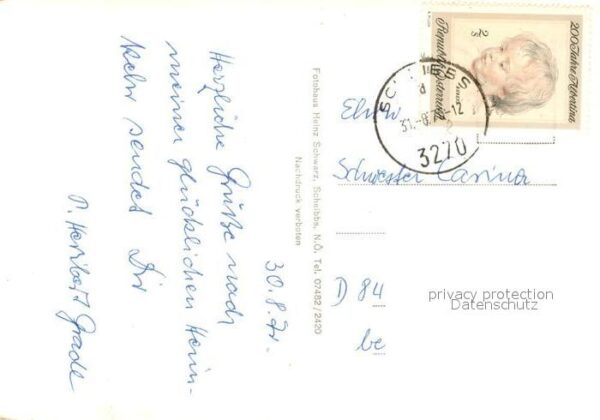 30.8.71.
Herzliche Grüße nach
meiner glücklichen Heim-
kehr sendet Dir
P. Heribert Grade
Fotohaus Heinz Schwarz, Scheibbs, N.Ö. Tel. 07482/2420
Nachdruck verboten
200 Jahre Albertina
Republik Österreich
2 S
SCHEIBBS
3270
Ehrw.
Schwester Carina
D 84
be
privacy protection
Datenschutz